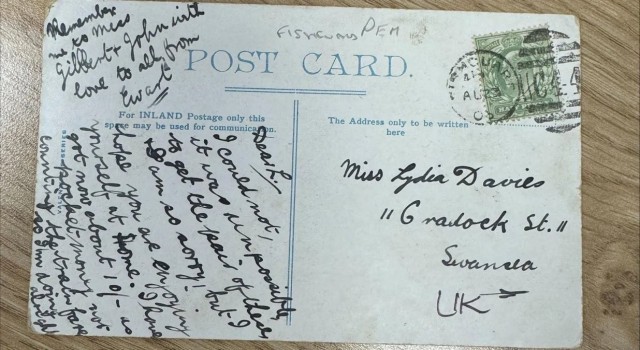 Remember
me to Miss
Gilbert & John with
love to all from
Ewart
FISHGUARD PEM
POST CARD.
For INLAND Postage only this
space may be used for communication.
The Address only to be written
here
Dear L.
I could not,
it was impossible
to get the pair of these
I am so sorry! but I
hope you are enjoying
yourself at home. I have
got now about 10/- as
pocket money not
counting the train fare
so am doing alright
Miss Lydia Davies
11 Cradock St.
Swansea
UK
AU